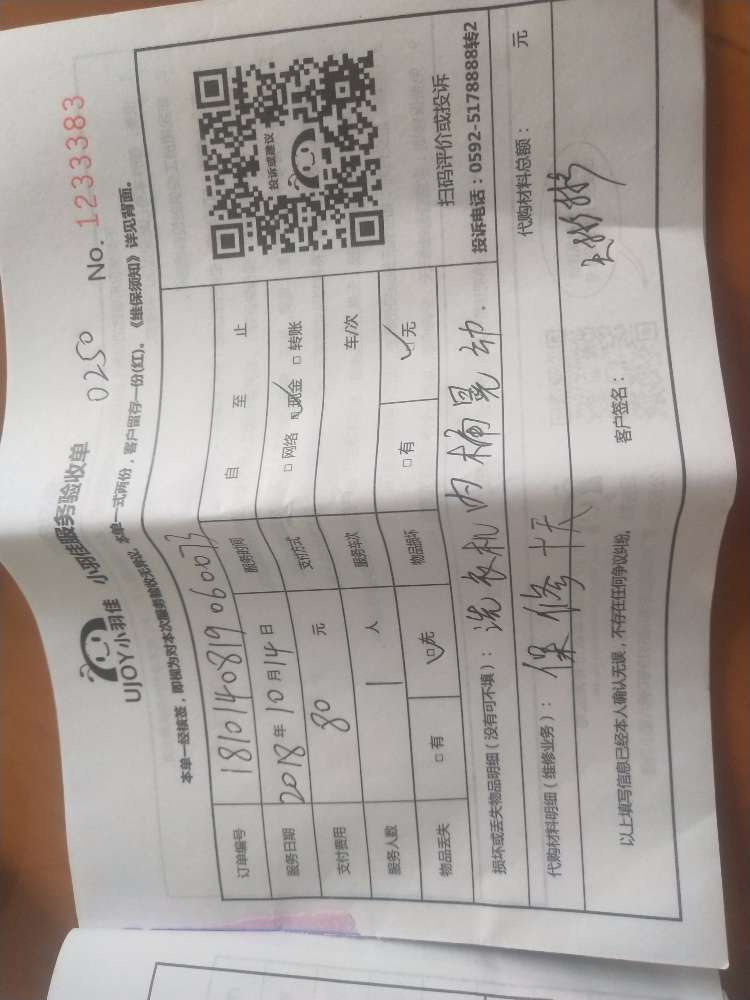 UJOY小羽佳 小羽佳服务验收单 0250 No. 1233383
本单一经核签，即视为对本次服务验收无异议 本单一式两份，客户留存一份(红)。《维保须知》详见背面。
订单编号 18101408190600 服务时间 自 至 止
服务日期 2018年10月14日 支付方式 □ 网络 现金 □ 转账
支付费用 80 元 服务车次 车/次
服务人数 1 人 物品损坏 □ 有 □ 无
物品丢失 □ 有 □ 无
投诉或建议
扫码评价或投诉
投诉电话：0592-5178888转2
损坏或丢失物品明细（没有可不填）：洗衣机内桶晃动.
代购材料明细（维修业务）：保修十天 代购材料总额： 元
以上填写信息已经本人确认无误，不存在任何争议纠纷。 客户签名：